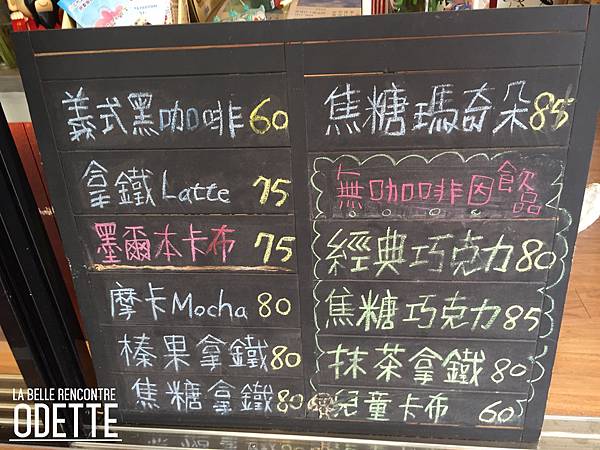 義式黑咖啡 60
拿鐵 Latte 75
墨爾本卡布 75
摩卡 Mocha 80
榛果拿鐵 80
焦糖拿鐵 80
焦糖瑪奇朵 85
無咖啡因飲品
經典巧克力 80
焦糖巧克力 85
抹茶拿鐵 80
兒童卡布 60
LA BELLE RENCONTRE
ODETTE